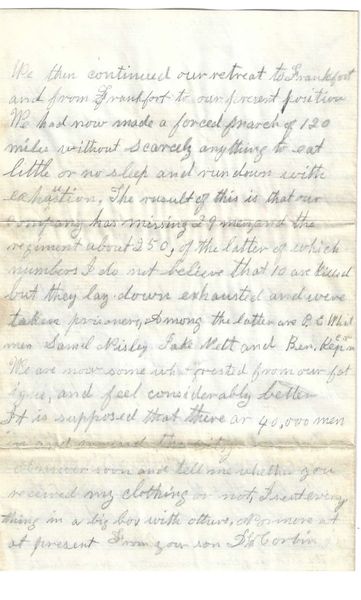 We then continued our retreat to Frankfort
and from Frankfort to our present position
We had now made a forced march of 120
miles without scarcely anything to eat
little or no sleep and run down with
exhaustion, The result of this is that our
company has missing 29 men and the
regiment about 250, of the latter of which
numbers I do not believe that 10 are killed
but they lay down exhausted and were
taken prisoners, Among the latter are
men Saml Nisley Jake Nett and Ben.
We are now some what rested from our fat
igue, and feel considerably better
It is supposed that there ar 40,000 men
in and around the city
soon and tell me whether you
received my clothing or not, I sent every
thing in a big box with others, No more at
at present From your son Corbin